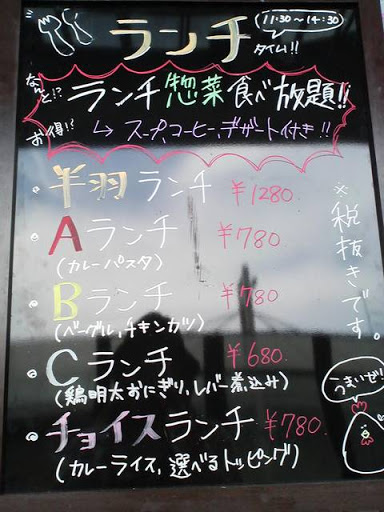 ランチ
11:30〜14:30
タイム!!
なんと!?
ランチ惣菜食べ放題!!
お得!?
↳スープ,コーヒー,デザート付き!!
・半羽ランチ ¥1280.
・Aランチ ¥780.
(カレーパスタ)
・Bランチ ¥780
(ベーグル,チキンカツ)
・Cランチ ¥680.
(鶏明太おにぎり,レバー煮込み)
・チョイスランチ ¥780
(カレーライス,選べるトッピング)
※税抜きです。
うまいぜ!!